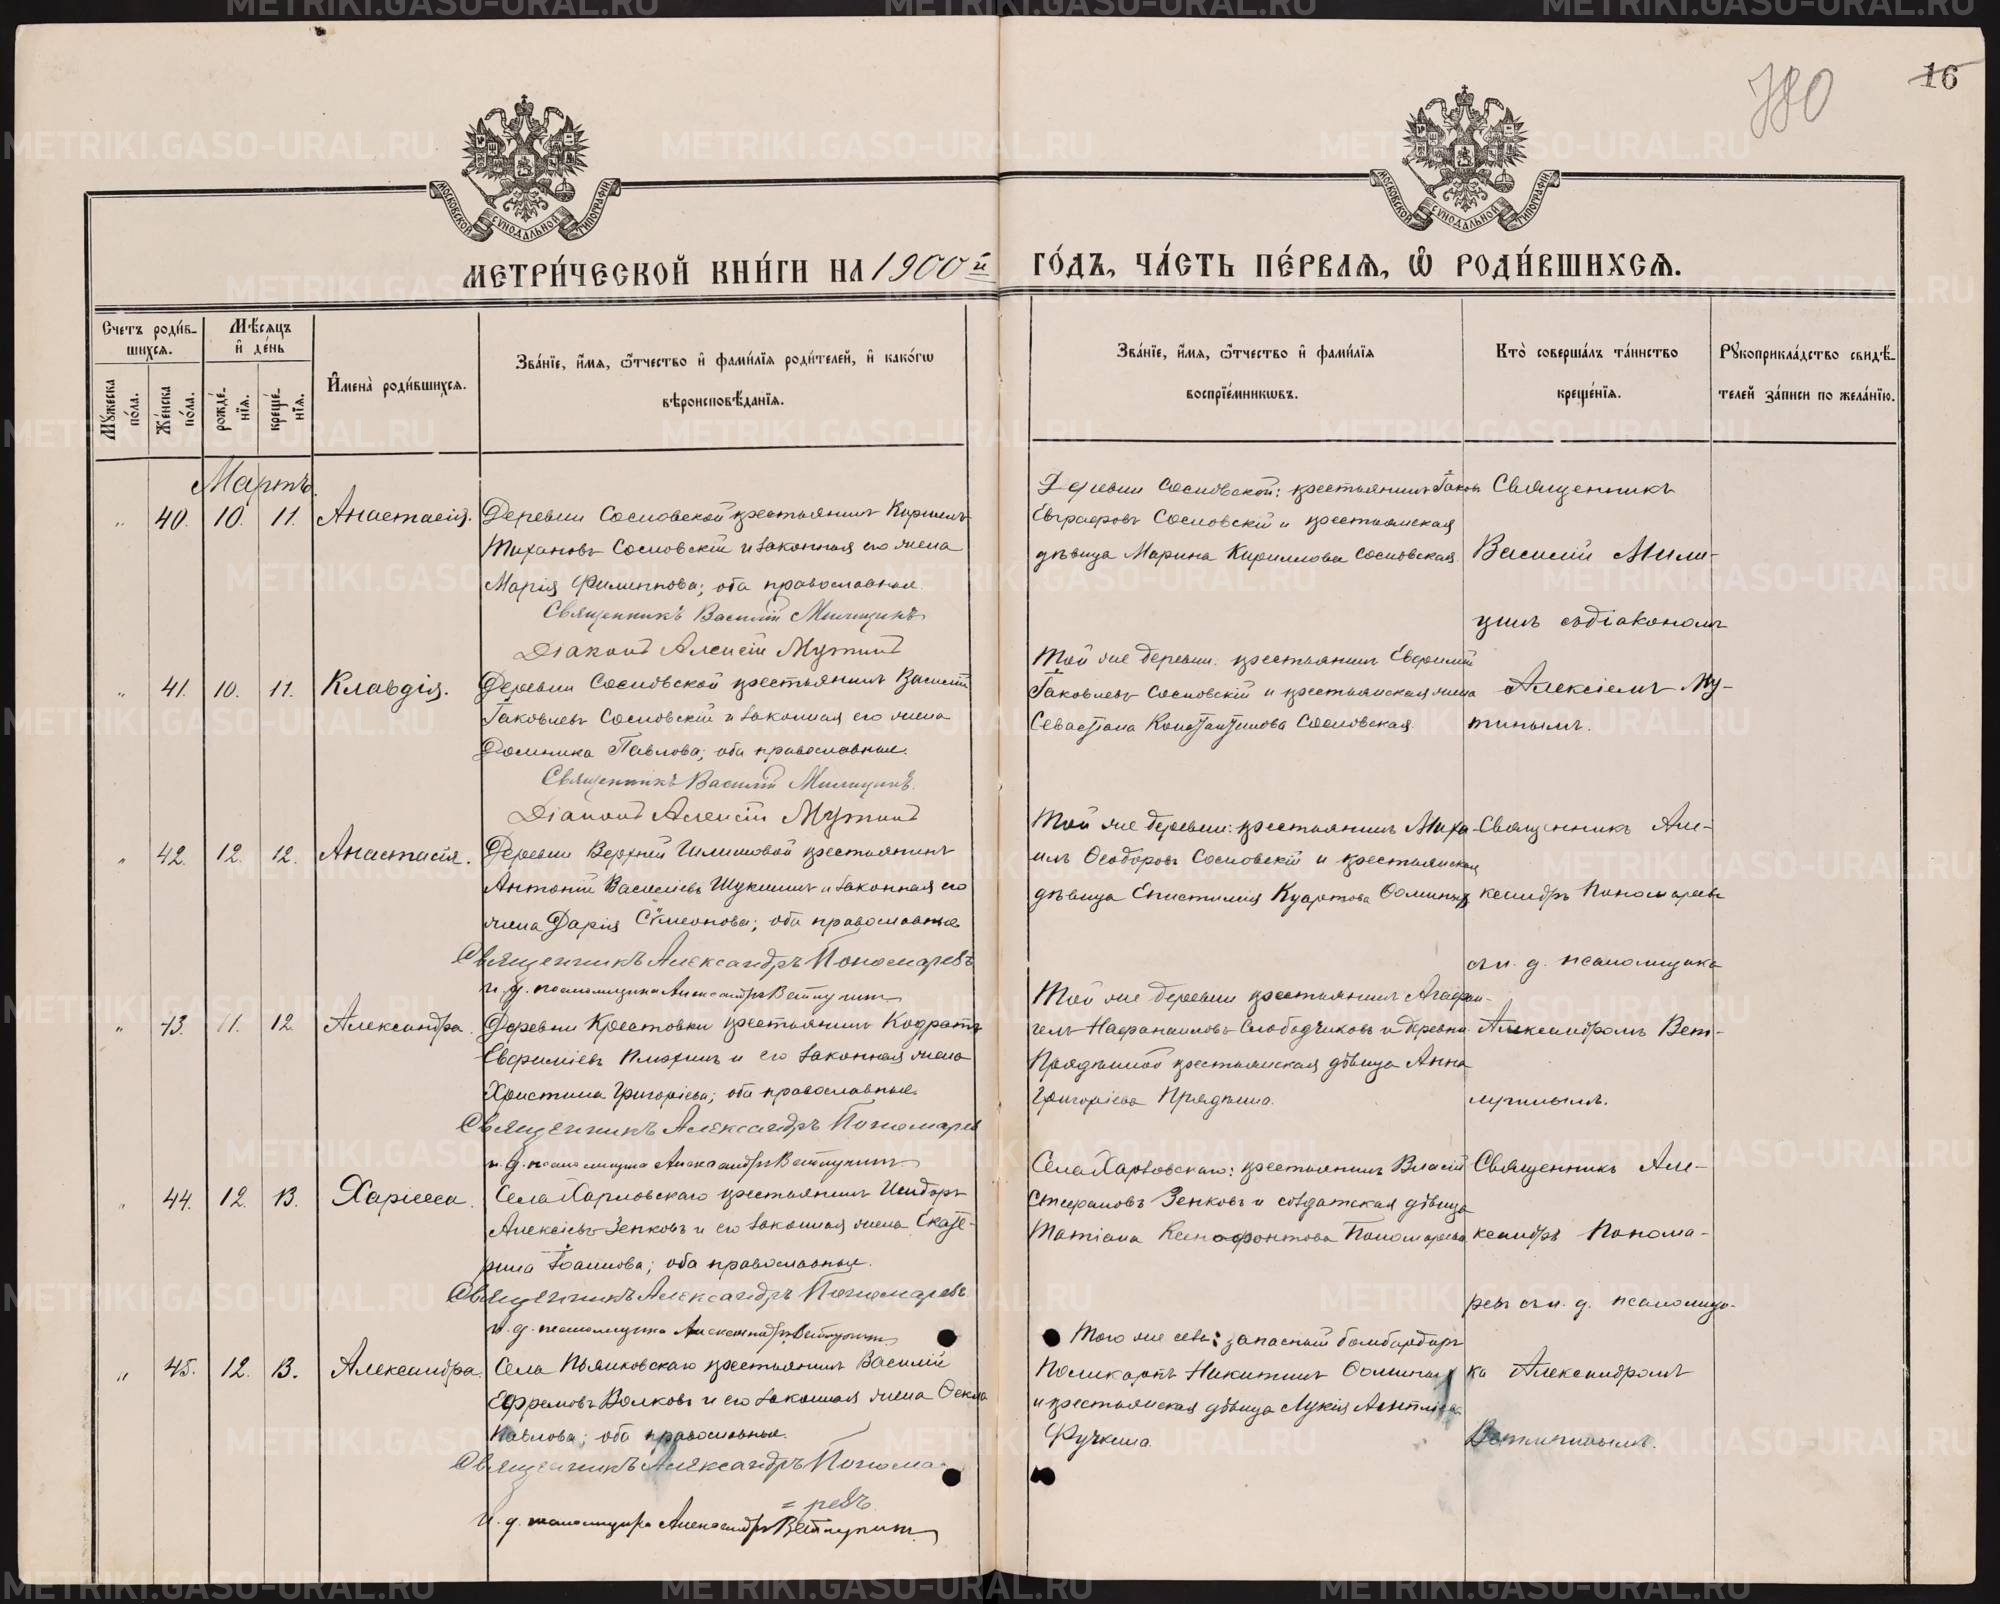 780
16
МОСКОВСКОЙ СѴНОДАЛЬНОЙ ТИПОГРАФІИ.
МОСКОВСКОЙ СѴНОДАЛЬНОЙ ТИПОГРАФІИ.
МЕТРИ́ЧЕСКОЙ КНИ́ГИ НА 1900й
ГО́ДЪ, ЧА́СТЬ ПЕ́РВАЯ, Ѽ РОДИ́ВШИХСЯ.
Счетъ роди́в-
шихся.
Мѣ́сяцъ
и҆ де́нь
Мꙋ́жеска
по́ла.
Же́нска
по́ла.
рожде́-
нїя.
креще́-
нїя.
И҆мена̀ роди́вшихся.
Зва́нїе, и҆́мя, ѻ҆́тчество и҆ фами́лїя роди́телей, и҆ како́гѡ
вѣроисповѣ́данїя.
Зва́нїе, и҆́мя, ѻ҆́тчество и҆ фами́лїя
воспрїе́мникѡвъ.
Кто̀ соверша́лъ та́инство
креще́нїя.
Рꙋкоприкла́дство свидѣ́-
телей за́писи по жела́нїю.
Мартъ.
" 40. 10. 11. Анастасія.
Деревни Сосновской крестьянинъ Кириллъ
Тихановъ Сосновскій и законная его жена
Марія Филиппова; оба православные
Священникъ Василій Милицинъ
Діаконъ Алексій Мутинъ
Деревни Сосновской: крестьянинъ Іаковъ
Евграфовъ Сосновскій и крестьянская
дѣвица Марина Кириллова Сосновская
Священникъ
Василій Мили-
цинъ съ діакономъ
Алексіемъ Му-
тинымъ.
" 41. 10. 11. Клавдія.
Деревни Сосновской крестьянинъ Василій
Іаковлевъ Сосновскій и законная его жена
Домника Павлова; оба православные.
Священникъ Василій Милицинъ.
Діаконъ Алексій Мутинъ
Той же деревни: крестьянинъ Евфимій
Іаковлевъ Сосновскій и крестьянская жена
Севастіана Константинова Сосновская
" 42. 12. 12. Анастасія.
Деревни Верхней Илюшовой крестьянинъ
Антоній Василіевъ Шукшинъ и законная его
жена Дарія Сѵмеонова; оба православные
Священникъ Александръ Пономаревъ
и. д. псаломщика Александръ Ветлугинъ
Той же деревни: крестьянинъ Миха-
илъ Ѳеодоровъ Сосновскій и крестьянская
дѣвица Епистимія Куартова Ѳоминыхъ
Священникъ Але-
ксандръ Пономаревъ
съ и. д. псаломщика
Александромъ Вет-
лугинымъ.
" 43. 11. 12. Александра.
Деревни Крестовки крестьянинъ Кодратъ
Евфиміевъ Плюхинъ и его законная жена
Христина Григоріева; оба православные.
Священникъ Александръ Пономарев
и. д. псаломщика Александръ Ветлугинъ
Той же деревни крестьянинъ Агафан-
гелъ Нафанаиловъ Слободчиковъ и деревни
Прядеиной крестьянская дѣвица Анна
Григоріева Прядеина.
" 44. 12. 13. Хариесса.
Села Харловскаго крестьянинъ Исидоръ
Алексіевъ Зенковъ и его законная жена Екате-
рина Іоаннова; оба православные.
Священникъ Александръ Пономаревъ
и. д. псаломщика Александръ Ветлугинъ
Села Харловскаго: крестьянинъ Власій
Стефановъ Зенковъ и солдатская дѣвица
Татіана Ксенофонтова Пономарева
Священникъ Але-
ксандръ Понома-
ревъ съ и. д. псаломщи-
ка Александромъ
Ветлугинымъ.
" 45. 12. 13. Александра
Села Пьянковскаго крестьянинъ Василій
Ефремовъ Волковъ и его законная жена Ѳекла
Павлова; оба православные.
Священникъ Александръ Понома-
=ревъ
и. д. псаломщика Александръ Ветлугинъ
Того же села: запасный бомбардиръ
Поликарпъ Никитинъ Ѳоминыхъ
и крестьянская дѣвица Лукія
Фучкина.